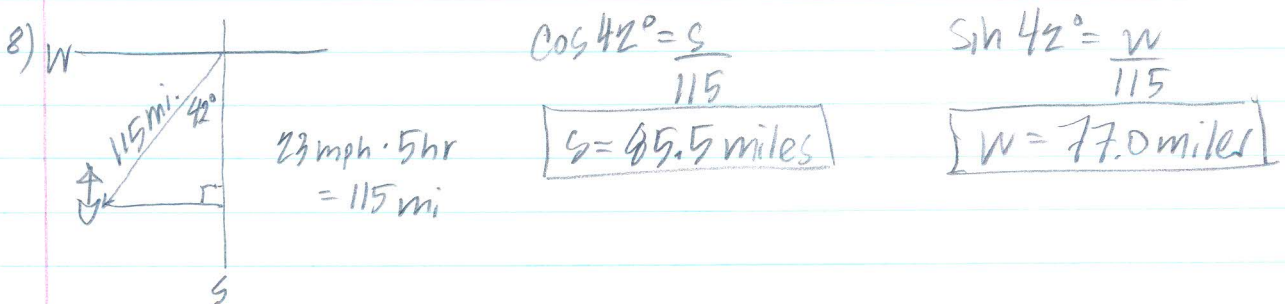 8) W
115 mi.
42°
S
23 mph · 5hr
= 115 mi
Cos 42° = s/115
s = 85.5 miles
Sin 42° = w/115
w = 77.0 miles